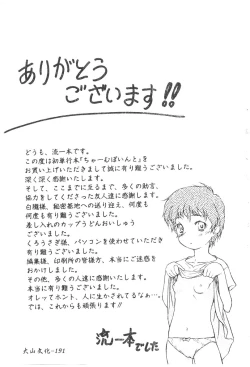 ありがとう
ございます!!
どうも、流一本です。
この度は初単行本『ちゃーむぽいんと』を
お買い上げいただきまして誠に有り難うございました。
深く深く感謝いたします。
そして、ここまでに至るまで、多くの助言、
協力をしてくださった友人達に感謝します。
白鷹様、秘密基地への送り迎え、何度も
何度も有り難うございました。
差し入れのカップうどんおいしゅう
ございました。
くろうさぎ様、パソコンを使わせていただき
有り難うございました。
編集様、印刷所の皆様方、本当にご迷惑を
おかけしました。
その他、多くの人達に感謝いたします。
本当に有り難うございました。
オレってホント、人に生かされてるなぁ…。
では、これからも頑張ります!!
流一本でした
犬山文化-191